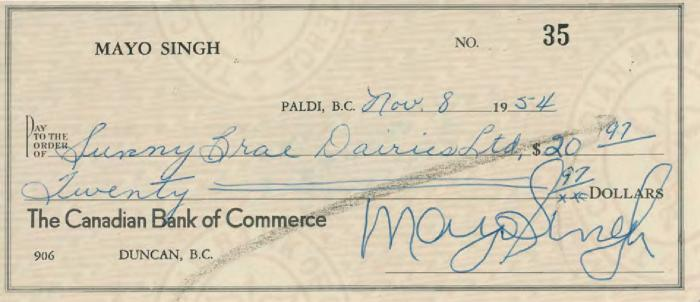 MAYO SINGH NO. 35
PALDI, B.C. Nov. 8 1954
PAY TO THE ORDER OF Sunny Brae Dairies Ltd, $20 97
Twenty 97 xx DOLLARS
The Canadian Bank of Commerce
906 DUNCAN, B.C.
Mayo Singh